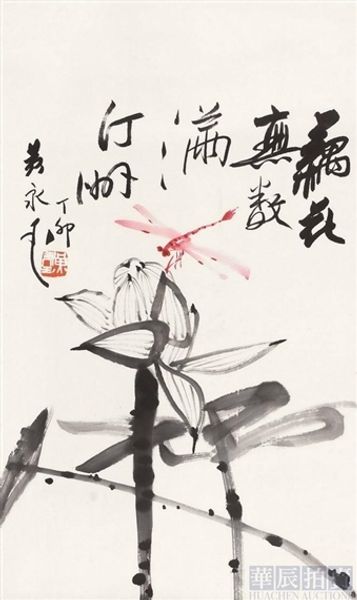 藕花
無数
满
汀洲
丁卯
黄永玉
華辰拍賣
HUACHEN AUCTIONS